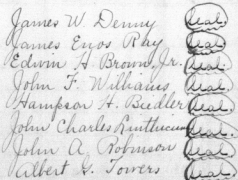 James W. Denny Seal.
James Enos Ray Seal.
Edwin H. Brown, Jr. Seal.
John F. Williams Seal.
Hampson H. Biedler Seal.
John Charles Linthicum Seal.
John A. Robinson Seal.
Albert G. Towers Seal.